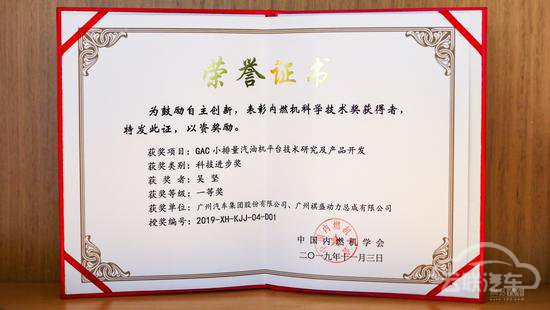 荣誉证书
为鼓励自主创新，表彰内燃机科学技术奖获得者，
特发此证，以资奖励。
获奖项目：GAC小排量汽油机平台技术研究及产品开发
获奖类别：科技进步奖
获奖者：吴坚
获奖等级：一等奖
获奖单位：广州汽车集团股份有限公司、广州祺盛动力总成有限公司
授奖编号：2019-XH-KJJ-04-D01
中国内燃机学会
二〇一九年十一月三日
云联汽车